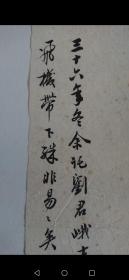 三十六年冬余託劉君峨士
飛機帶下殊非易々矣